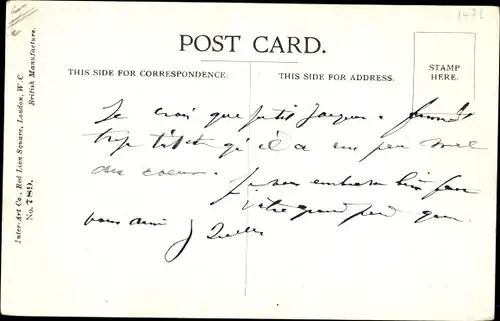 1421
POST CARD.
THIS SIDE FOR CORRESPONDENCE.
THIS SIDE FOR ADDRESS.
STAMP
HERE.
Inter-Art Co., Red Lion Square, London, W.C.
British Manufacture.
No. 789.
Je crois que petit Jacques
trop tôt qu'il a un peu mal
au coeur.
Je vous embrasse bien
Votre grand père qui
vous aime J